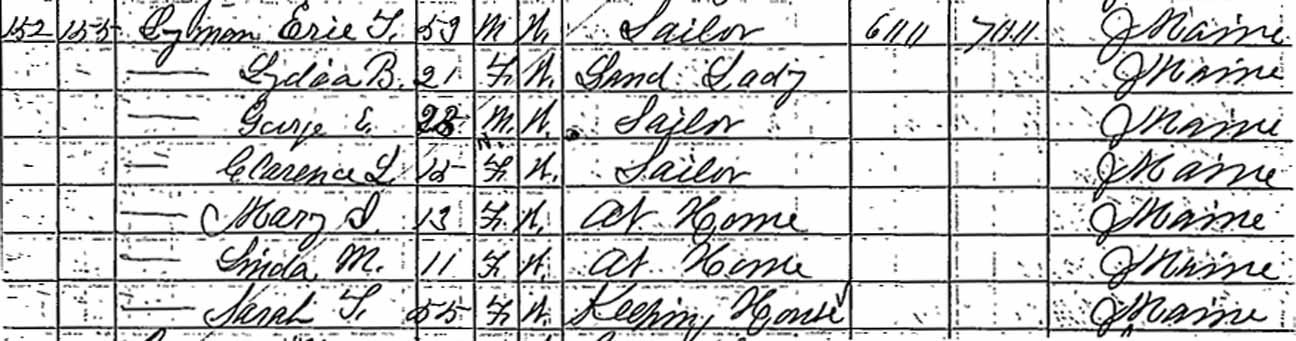 152 155 Lyman Eric T. 59 M W. Sailor 600 700 Maine
—— Lydia B. 21 F. W. Land Lady Maine
—— Gorje E. 23 M. W. Sailor Maine
—— Clarence L. 15 F. W. Sailor Maine
—— Mary S. 13 F. W. At Home Maine
—— Linda M. 11 F. W. At Home Maine
—— Sarah T. 55 F. W. Keeping House Maine